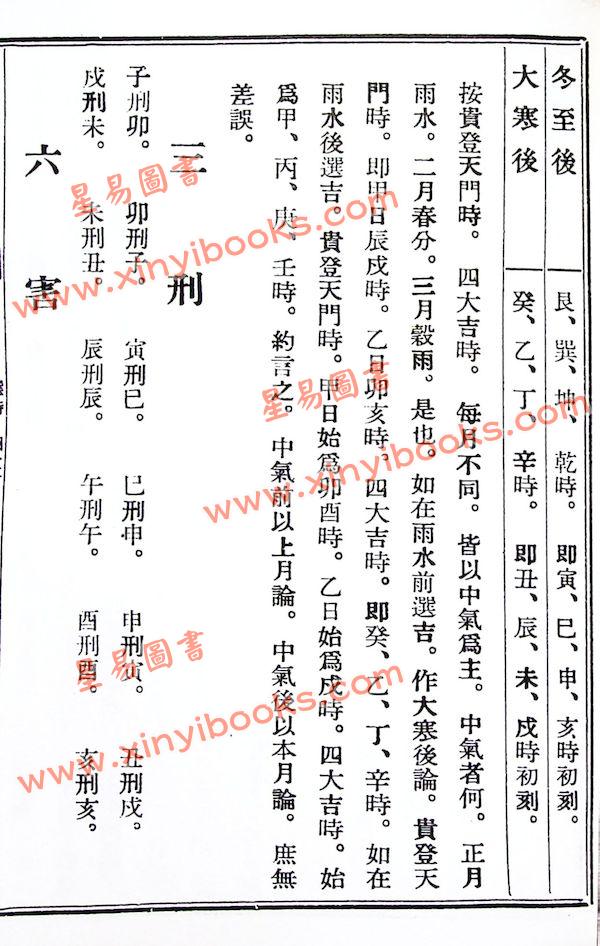 冬至後　艮、巽、坤、乾時。　即寅、巳、申、亥時初刻。
大寒後　癸、乙、丁、辛時。　即丑、辰、未、戌時初刻。
按貴登天門時。四大吉時。每月不同。皆以中氣爲主。中氣者何。正月
雨水。二月春分。三月穀雨。是也。如在雨水前選吉。作大寒後論。貴登天
門時。即甲日辰戌時。乙日卯亥時。四大吉時。即癸、乙、丁、辛時。如在
雨水後選吉。貴登天門時。甲日始爲卯酉時。乙日始爲戌時。四大吉時。始
爲甲、丙、庚、壬時。約言之。中氣前以上月論。中氣後以本月論。庶無
差誤。
三刑
子刑卯。　卯刑子。　寅刑巳。　巳刑申。　申刑寅。　丑刑戌。
戌刑未。　未刑丑。　辰刑辰。　午刑午。　酉刑酉。　亥刑亥。
六害
星易圖書
www.xinyibooks.com
星易圖書
www.xinyibooks.com
星易圖書
www.xinyibooks.com